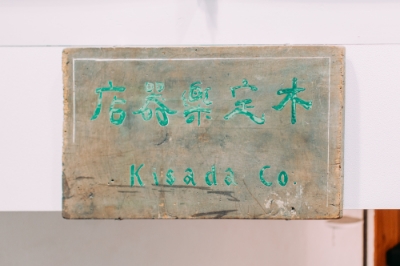 木定樂器店
Kisada Co